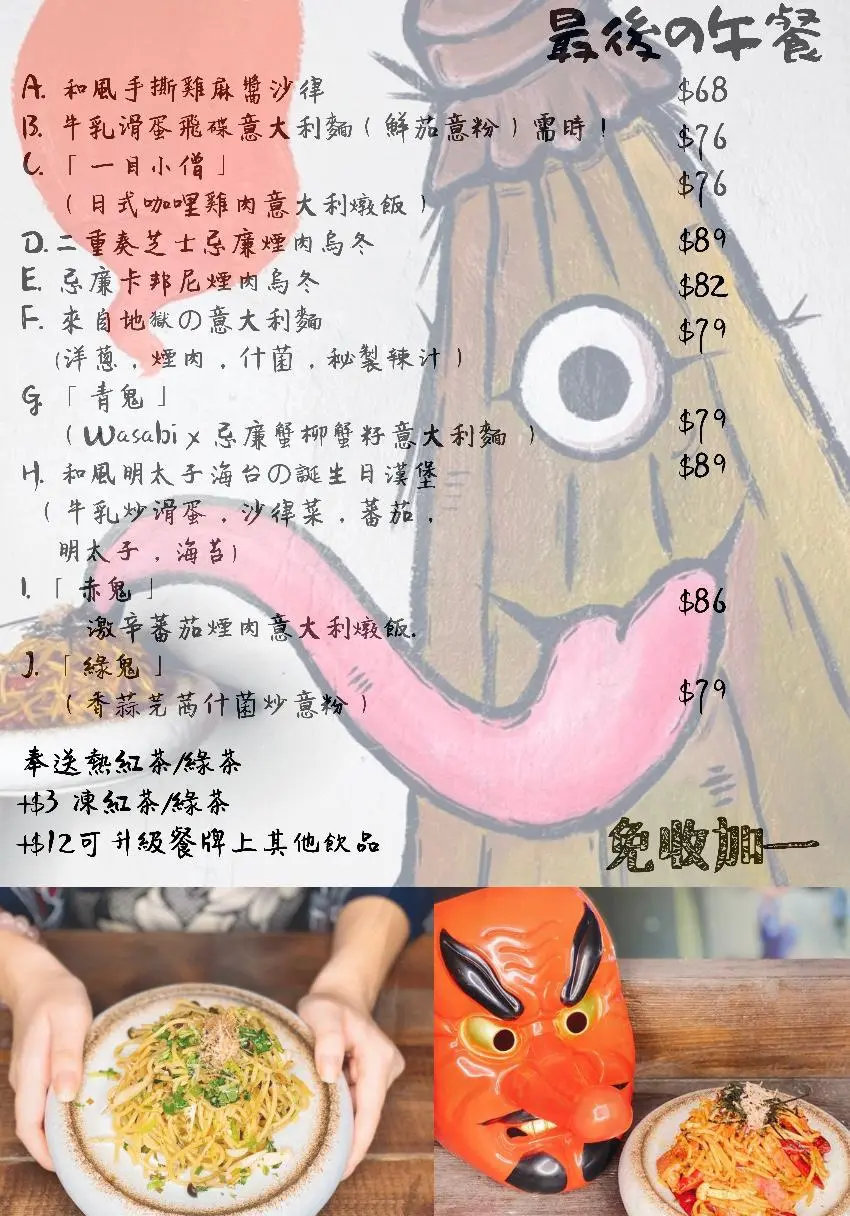 最後の午餐
A. 和風手撕雞麻醬沙律 $68
B. 牛乳滑蛋飛碟意大利麵(鮮茄意粉)需時! $76
C. 「一目小僧」 $76
(日式咖哩雞肉意大利燉飯)
D. 二重奏芝士忌廉煙肉烏冬 $89
E. 忌廉卡邦尼煙肉烏冬 $82
F. 來自地獄の意大利麵 $79
(洋蔥,煙肉,什菌,秘製辣汁)
G. 「青鬼」 $79
(Wasabi x 忌廉蟹柳蟹籽意大利麵)
H. 和風明太子海台の誕生日漢堡 $89
(牛乳炒滑蛋,沙律菜,蕃茄,
明太子,海苔)
I. 「赤鬼」 $86
激辛蕃茄煙肉意大利燉飯.
J. 「綠鬼」 $79
(香蒜芫茜什菌炒意粉)
奉送熱紅茶/綠茶
+$3 凍紅茶/綠茶
+$12可升級餐牌上其他飲品
免收加一